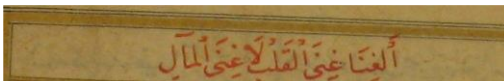 أَلْغِنَا غِنَى الْقَلْبِ لَا غِنَى الْمَالِ